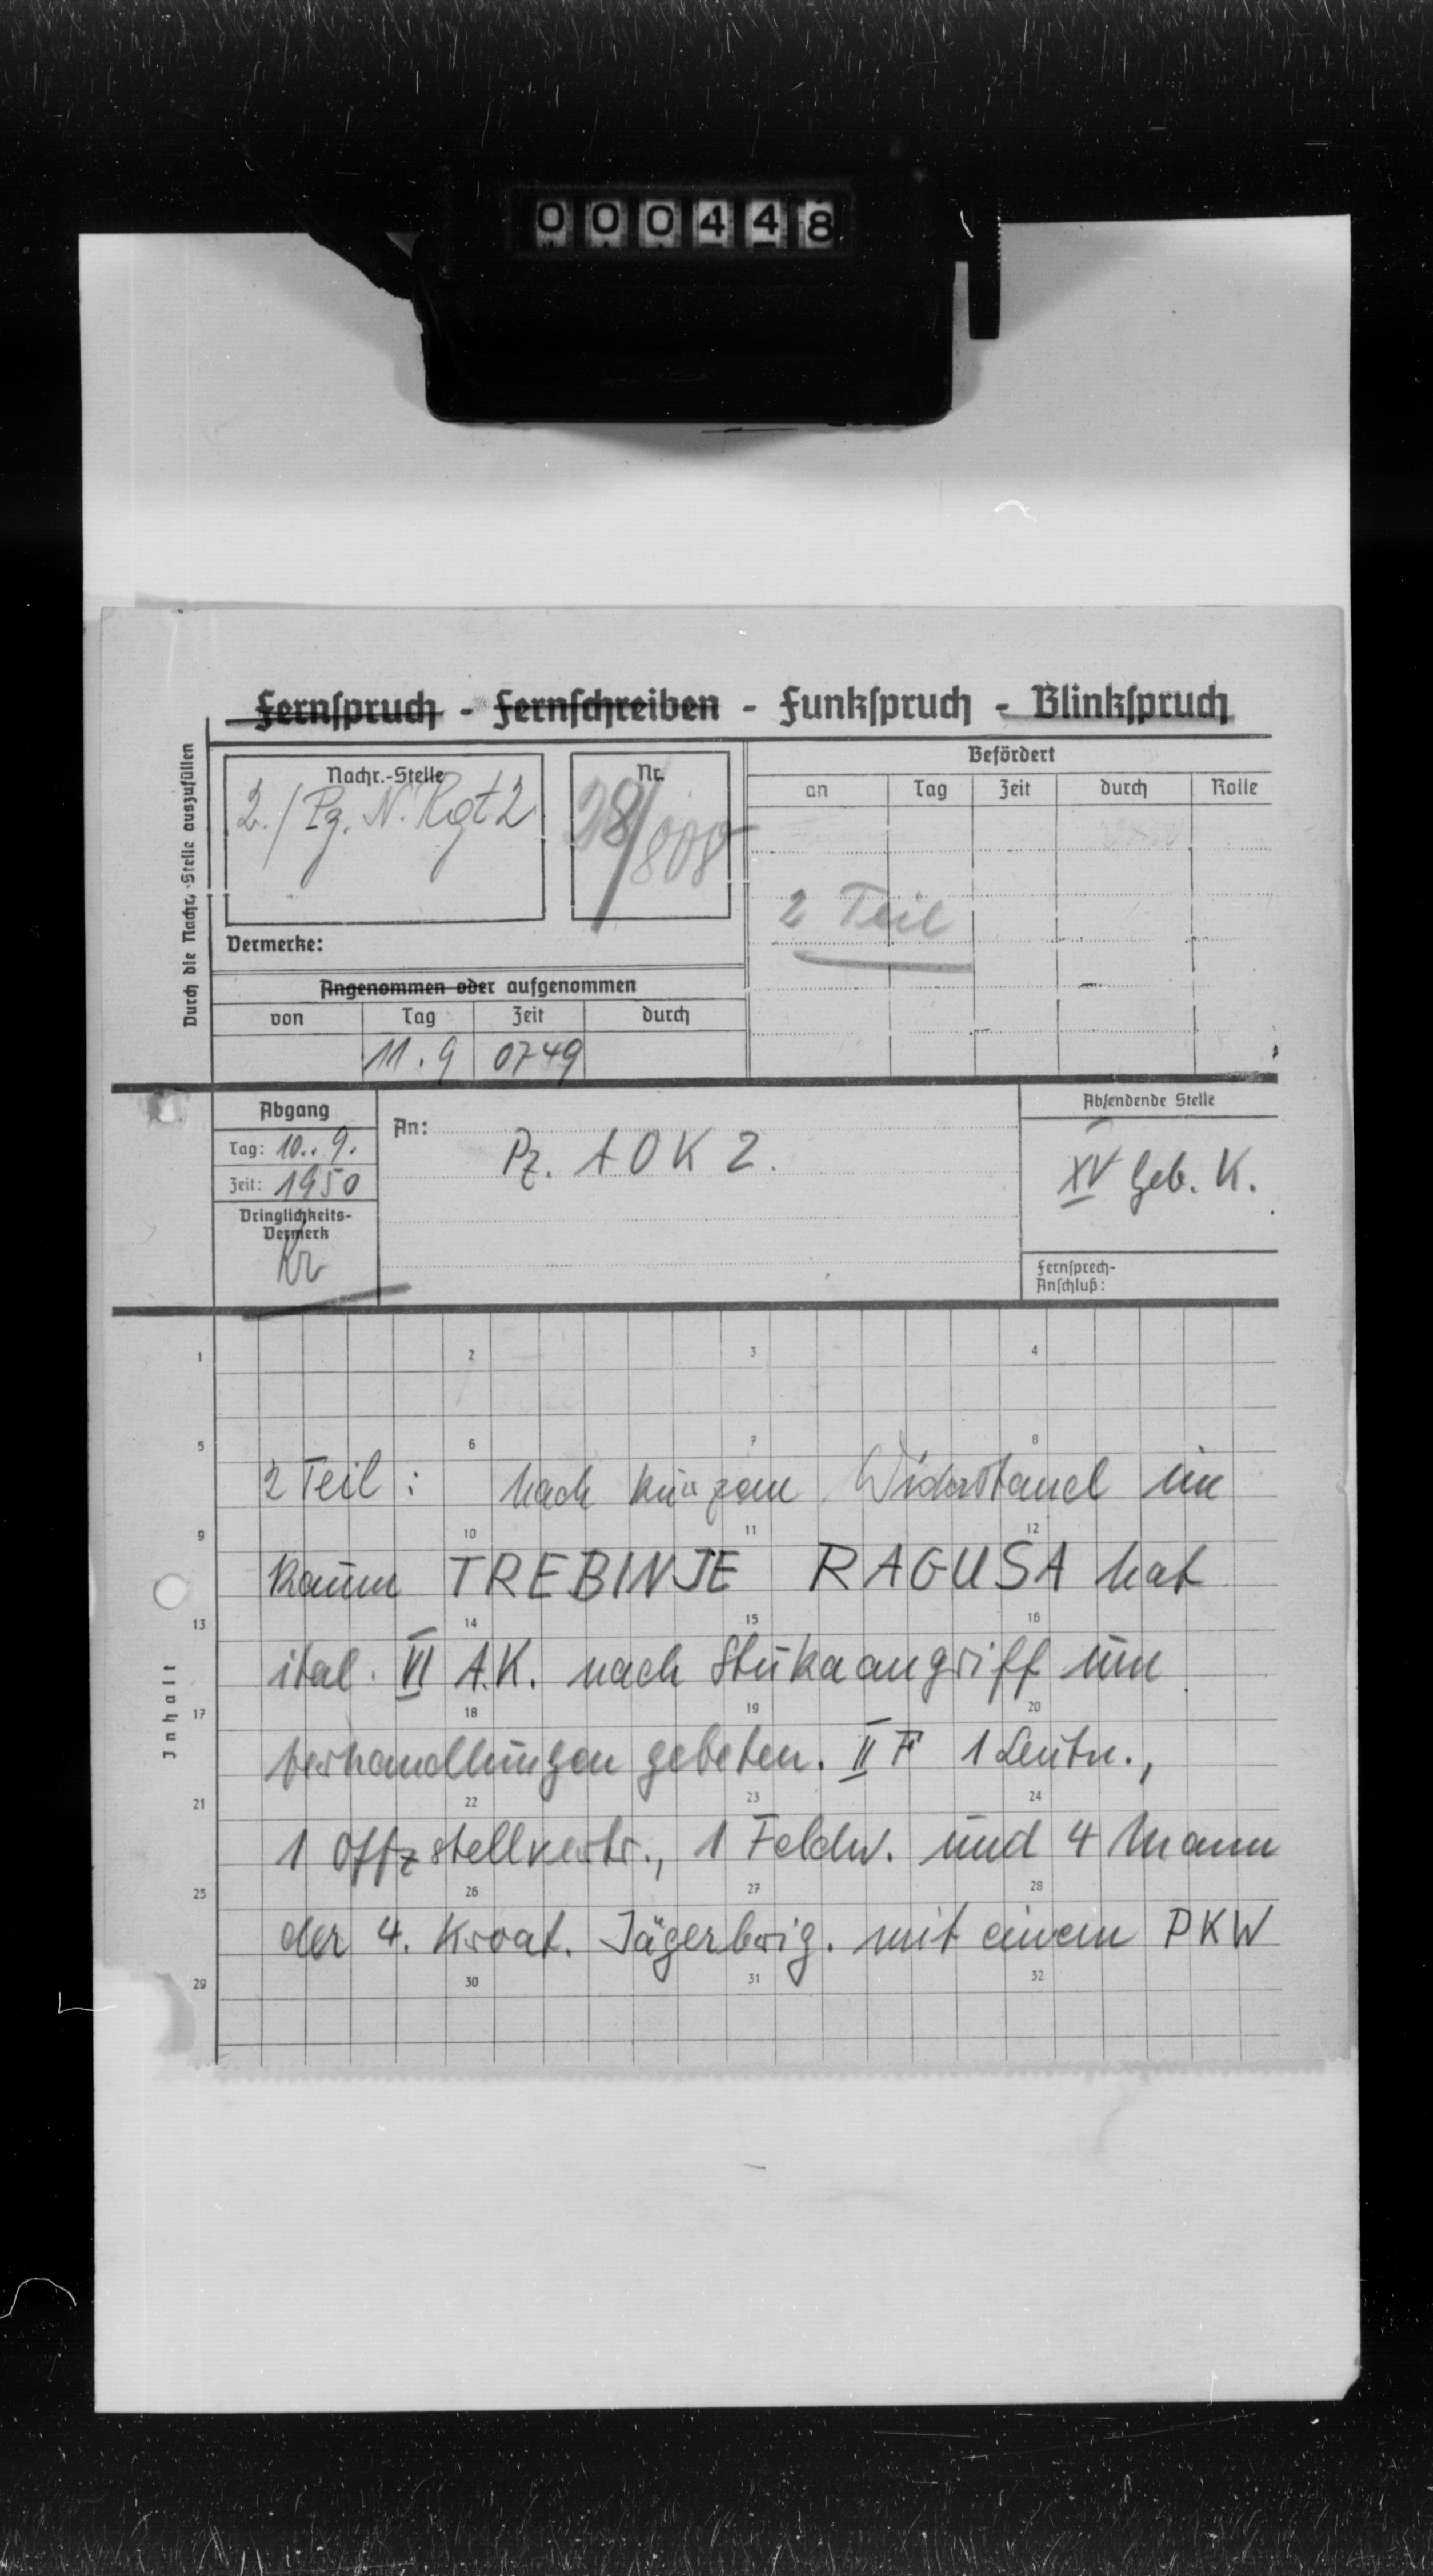 000448
Fernspruch - Fernschreiben - Funkspruch - Blinkspruch
Durch die Nachr.-Stelle auszufüllen
Nachr.-Stelle
2./Pz. N. Rgt 2
Nr.
28/808
Befördert
an Tag Zeit durch Rolle
2 Teil
Vermerke:
Angenommen oder aufgenommen
von Tag Zeit durch
11.9 0749
Abgang
Tag: 10..9.
Zeit: 1950
Dringlichkeits-
Vermerk
Kr
An:
Pz. AOK 2.
Absendende Stelle
XV Geb. K.
Fernsprech-
Anschluß:
Inhalt
1 2 3 4
5 6 7 8
2 Teil: Nach kurzem Widerstand im
9 10 11 12
Raum TREBINJE RAGUSA hat
13 14 15 16
ital. VI A.K. nach Stukaangriff um
17 18 19 20
Verhandlungen gebeten. II F 1 Leutn.,
21 22 23 24
1 Offzstellvertr., 1 Feldw. und 4 Mann
25 26 27 28
der 4. Kroat. Jägerbrig. mit einem PKW
29 30 31 32